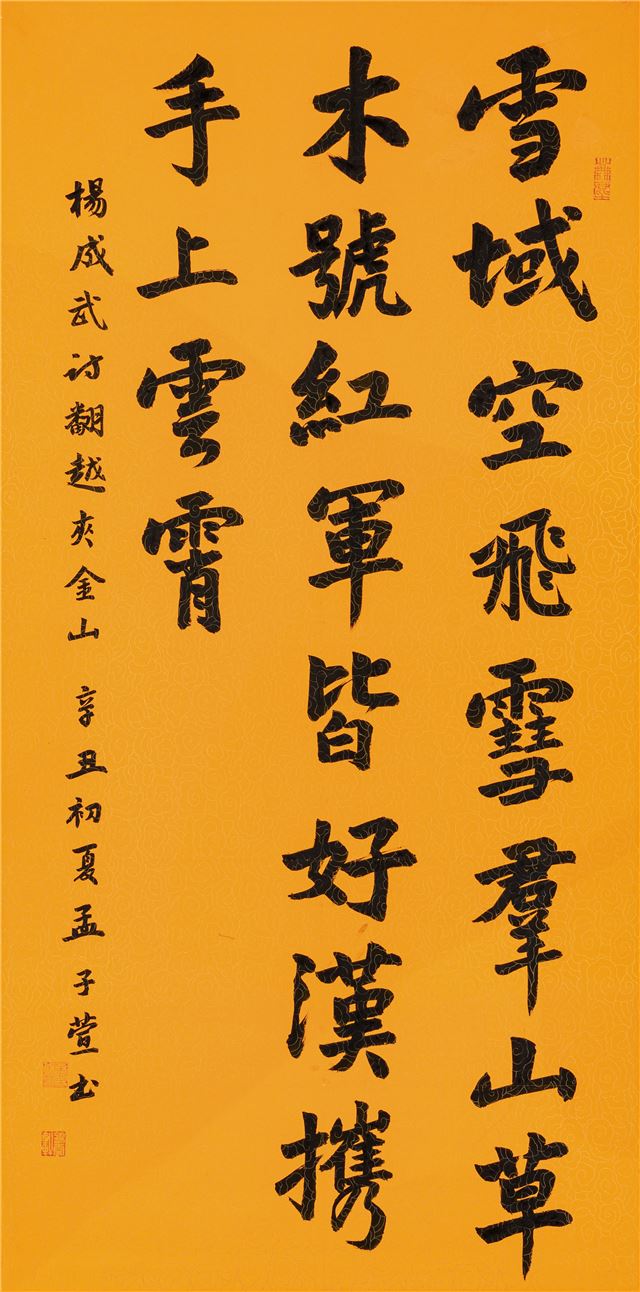 雪域空飛雪羣山草
木號紅軍皆好漢攜
手上雲霄
楊成武詩翻越夾金山 辛丑初夏孟子萱书